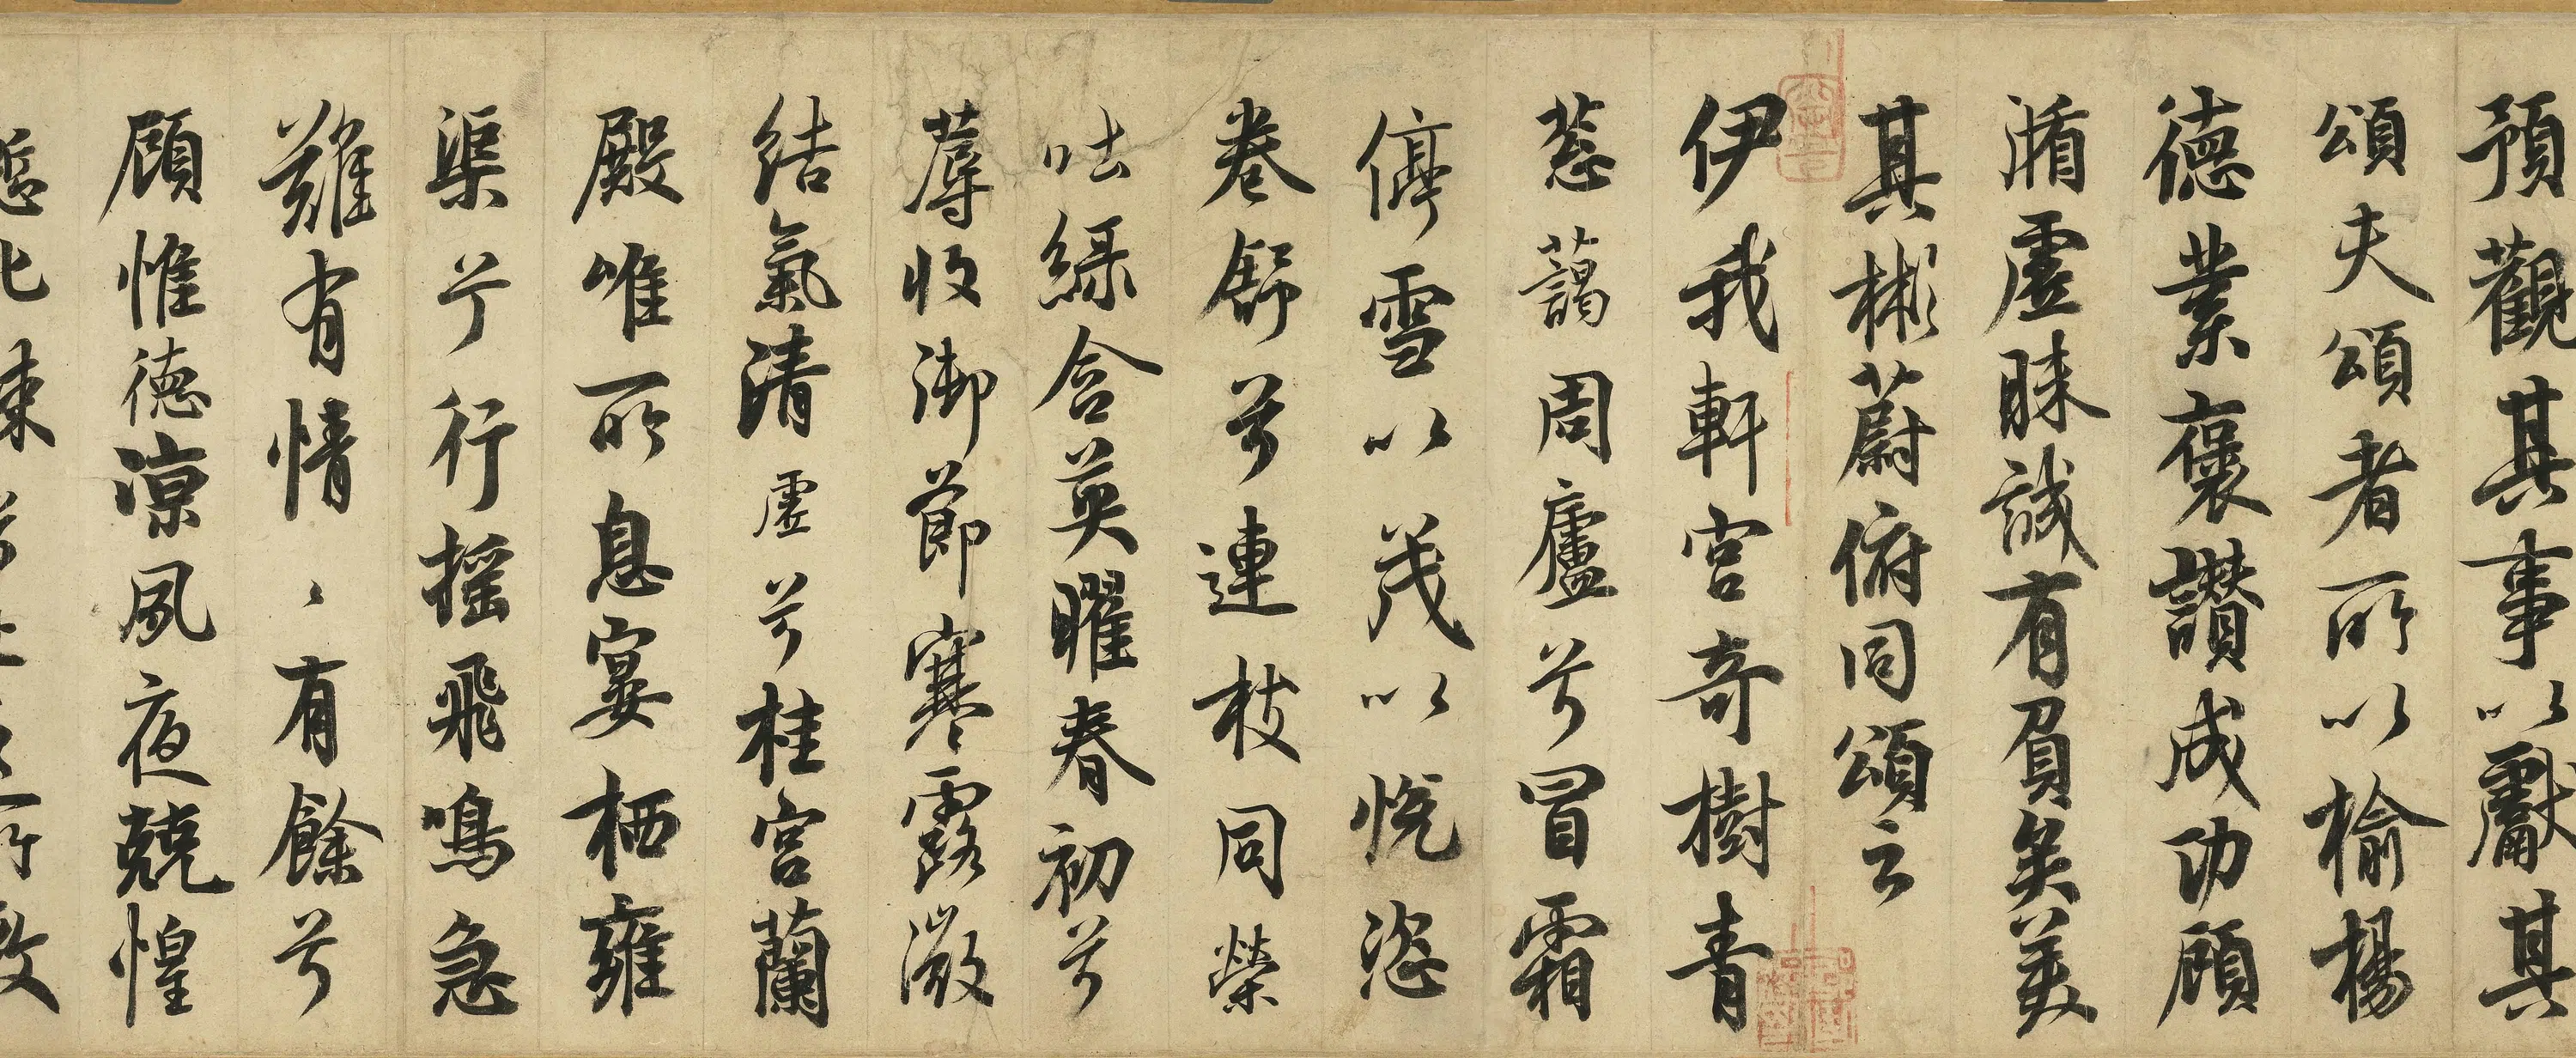 預觀其事以獻其
頌夫頌者所以榆楊
德業褒讚成功顧
循虛昧誠有負矣美
其彬蔚俯同頌云
伊我軒宮奇樹青
葱藹周廬兮冒霜
停雪以茂以悅恣
卷舒兮連枝同榮
吐綠含英曜春初兮
蓐收御節寒露微
結氣清虛兮桂宮蘭
殿唯所息宴栖雍
渠兮行搖飛鳴急
難有情〻有餘兮
顧惟德凉夙夜兢惶